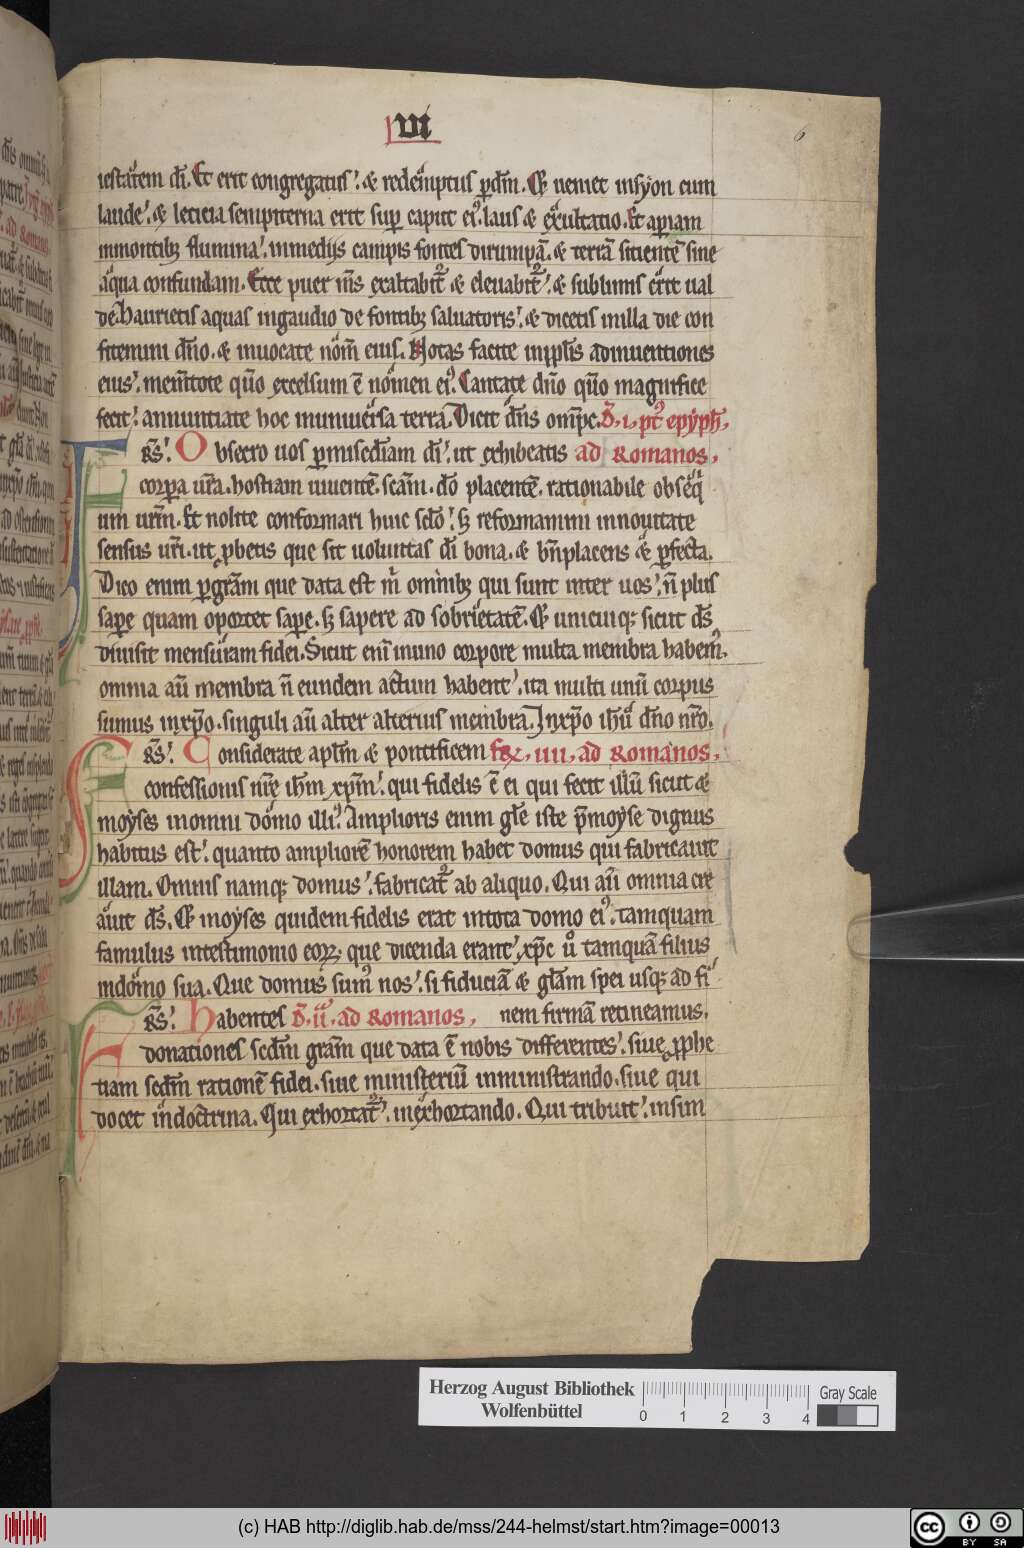 VI
6
iestatem dī. Et erit congregatus. & redemptus ꝑ dm̄. Et ueniet in syon cum
laude. & leticia sempiterna erit sup caput eiꝰ. laus & exultatio. Et aperiam
in montibꝫ flumina. in medijs campis fontes dirumpā. & terrā sitientē sine
aqua confundam. Ecce puer m̄s exaltabit᷑ & eleuabit᷑. & sublimis erit ual
de. Haurietis aquas in gaudio de fontibꝫ saluatoris. & dicetis in illa die con
fitemini dn̄o. & inuocate nōm eius. Notas facite in ppl̄is adinuentiones
eius. mem̄tote qm̄o excelsum ē nomen eiꝰ. Cantate dn̄o qm̄o magnifice
fecit. annuntiate hoc in uniuersa terra. Dicit dn̄s omp̄c. D̄. i. pꝰt epyph̄.
R̄s. Obsecro uos ꝑ misedīam dī. ut exhibeatis ad Romanos.
corpora ur̄a. hostiam uiuentē. scām. dō placentē. rationabile obseq̄
um ur̄m. Et nolite conformari huic sclō. sꝫ reformamini in nouitate
sensus ur̄i. ut ꝓbetis que sit uoluntas dī bona. & bn̄placens & ꝑfecta.
Dico enim ꝑ grām que data est m̄ omnibꝫ qui sunt inter uos. n̄ plus
sape quam oportet sape. sꝫ sapere ad sobrietatē. Et unicuiqꝫ sicut ds̄
diuisit mensuram fidei. Sicut enī in uno corpore multa membra habemꝰ.
omnia aū membra n̄ eundem actum habent. ita multi unū corpus
sumus in xp̄o. singuli aū alter alterius membra. In xp̄o ih̄u dn̄o nr̄o.
R̄s. Considerate aplm̄ & pontificem fer. iiii. ad Romanos.
confessionis nr̄e ih̄m xp̄m. qui fidelis ē ei qui fecit illū sicut &
moyses in omni domo illiꝰ. Amplioris enim glē iste p̄ moyse dignus
habitus est. quanto ampliorē honorem habet domus qui fabricauit
illam. Omnis namqꝫ domus. fabricat᷑ ab aliquo. Qui aū omnia cre
auit ds̄. Et moyses quidem fidelis erat in tota domo eiꝰ. tamquam
famulus in testimonio eoꝝ que dicenda erant. xp̄c uo tamquā filius
in domo sua. Que domus sumꝰ nos. si fiduciā & glām spei usqꝫ ad fi
R̄s. Habentes D̄. ii. ad Romanos. nem firmā retineamus.
donationes scdm̄ grām que data ē nobis differentes. siue ꝓphe
tiam scdm̄ rationē fidei. siue ministeriū in ministrando. siue qui
docet in doctrina. Qui exhortat᷑. in exhortando. Qui tribuit. in sim
Herzog August Bibliothek
Wolfenbüttel
0 1 2 3 4
Gray Scale
(c) HAB http://diglib.hab.de/mss/244-helmst/start.htm?image=00013
cc BY SA